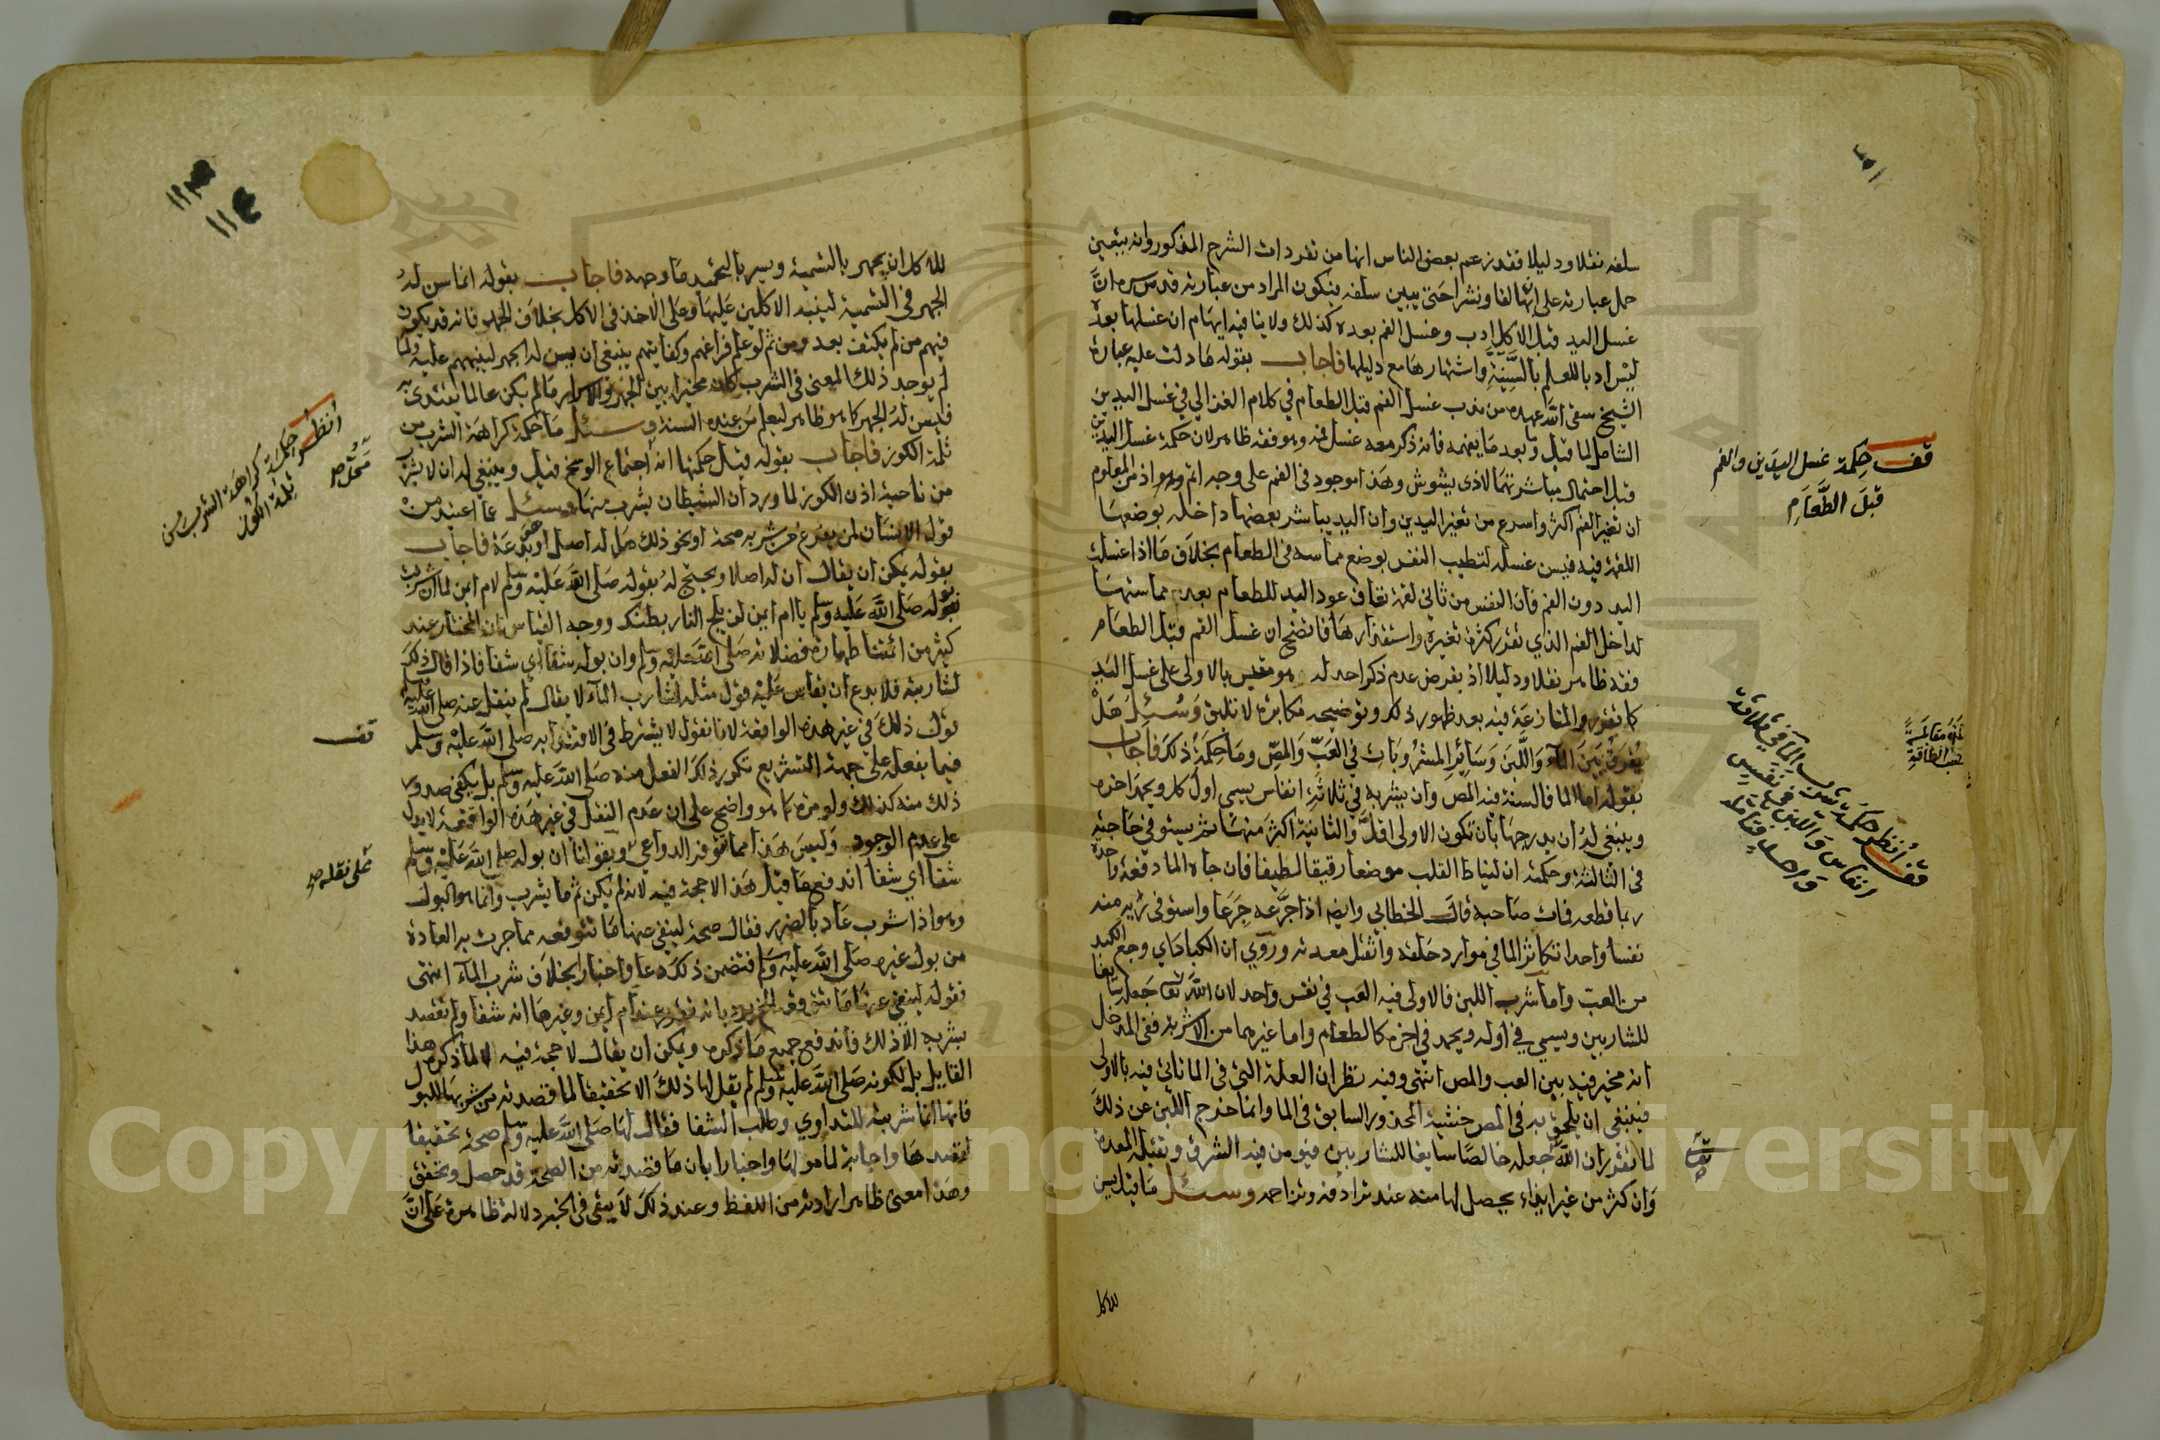 سلفه نقلا ودليلا فقد زعم بعض الناس انها من تفردات الشرح المذكور وانه يتعين
حمل عبارته على انها لفا ونشرا حتى يبين سلفه فتكون المراد من عبارته قدس سره ان
غسل اليد قبل الاكل ادب وغسل الفم بعده كذلك ولا ينافيه ايهام ان غسلها بعده
ليس ادبا للعلم بالسنية واشتهارها مع دليلها فاجاب بقوله ما دلت عليه عبارة
الشيخ سقى الله عهده من ندب غسل الفم قبل الطعام في كلام الغزالي في غسل اليدين
الشامل لما قبل وما بعد ما يفهمه فانه ذكر معه غسل فمه وهو فقه ظاهر لان حكمة غسل اليدين
قبل احتمال مباشرتهما لاذى يشوش وهذا موجود في الفم على وجه اتم اذ من المعلوم
ان تغير الفم اكثر واسرع من تغير اليدين وان اليد يباشر بعضها داخله بوضعها
اللقمة فيه فيسن غسله لتطيب النفس بوضع مماسه في الطعام بخلاف ما اذا غسلت
اليد دون الفم فان النفس من ثاني لقمة تعاف عود اليد للطعام بعد مماستها
لداخل الفم الذي تقرر كثرة تغيره واستقذارها فاتضح ان غسل الفم قبل الطعام
فقه ظاهر نقلا ودليلا اذ بفرض عدم ذكر احد له هو مقيس بالاولى على غسل اليد
كما تقرر والمنازعة فيه بعد ظهور ذلك وتوضيحه مكابرة لا تليق وسئل هل
يفرق بين الماء واللبن وسائر المشروبات في العب والمص وما حكمة ذلك فاجاب
بقوله اما الما فالسنة فيه المص وان يشربه في ثلاثة انفاس يسمي اول كل ويحمد اخره
وينبغي له ان يدرجها بان تكون الاولى اقل والثانية اكثر منها ثم يستوفي حاجته
في الثالثة وحكمته ان لنياط القلب موضعا رقيقا لطيفا فان جاه الما دفعة واحدة
ربما قطعه فمات صاحبه قال الخطابي وايضا اذا جرعه جرعا واستوفى ريه منه
نفسا واحدا تكاثر الما في موارد حلقه واثقل معدته وروي ان الكباد اي وجع الكبد
من العب واما شرب اللبن فالاولى فيه العب في نفس واحد لان الله تعالى جعله سايغا
للشاربين ويسمي في اوله ويحمد في اخره كالطعام واما غيرهما من الاشربة ففي المدخل
انه مخير فيه بين العب والمص انتهى وفيه نظر ان العلة التي في الما تاتي فيه بالاولى
فينبغي ان يلحق به في المص خشية المحذور السابق في الما وانما خرج اللبن عن ذلك
لما تقرر ان الله جعله خالصا سايغا للشاربين فيؤمن فيه الشرق وتقبله المعدة
وان كثر من غير ايذاء يحصل لها منه عند ترادفه وتزاحمه وسئل ما قيل يسن
للاكل
قف حكمة غسل اليدين والفم
قبل الطعام
قف انظر حكمة شرب الما في ثلاثة
انفاس واللبن في نفس
واحد فتامله
بلغ مقابلة
حسب الطاقة
قف
للاكل ان يجهر بالتسمية ويسر بالتحميد ما وجهه فاجاب بقوله انما سن له
الجهر في التسمية لينبه الاكلين عليها وعلى الاخذ في الاكل بخلاف الحمد فانه قد يكون
فيهم من لم يكتف بعد ومن ثم لو علم فراغهم وكفايتهم ينبغي ان يسن له الجهر لينبههم عليه ولما
لم يوجد ذلك المعنى في الشرب كان مخيرا بين الجهر والاسرار ما لم يكن عالما يقتدى به
فيسن له الجهر كما هو ظاهر ليعلم من عنده السنة وسئل ما حكمة كراهة الشرب من
ثلمة الكوز فاجاب بقوله قيل حكمتها انه اجتماع الوسخ قيل وينبغي له ان لا يشرب
من ناحية اذن الكوز لما ورد ان الشيطان يشرب منها وسئل عما اعتيد من
قول الانسان لمن يفرغ من شربه صحة او نحو ذلك هل له اصل او هو بدعة فاجاب
بقوله يمكن ان يقال ان له اصلا ويحتج له بقوله صلى الله عليه وسلم لام ايمن لما ان شربت
بوله صلى الله عليه وسلم يا ام ايمن لن يلج النار بطنك ووجه القياس ان المختار عند
كثير من ائمتنا طهارة فضلاته صلى الله عليه وسلم وان بوله شفا اي شفا فاذا قال ذلك
لشاربته فلا بدع ان يقاس عليه قول مثله لشارب الماء لا يقال لم ينقل عنه صلى الله عليه وسلم
قول ذلك في غير هذه الواقعة لانا نقول لا يشترط في الاقتدا به صلى الله عليه وسلم
فيما يفعله على جهة التشريع تكرر ذلك الفعل منه صلى الله عليه وسلم بل يكفي صدور
ذلك منه كذلك ولو مرة كما هو واضح على ان عدم النقل في غير هذه الواقعة لا يدل
على عدم الوجود وليس هذا مما تتوفر الدواعي وبقولنا ان بوله صلى الله عليه وسلم
شفا اي شفا اندفع ما قيل هذا لا حجة فيه لانه لم يكن ثم ما يشرب وانما هو البول
وهو اذا شرب عاد بالضرر فقال صحة لينفي عنها ما تتوقعه مما جرت به العادة
من بول غيره صلى الله عليه وسلم فتضمن ذلك دعا واخبارا بخلاف شرب الماء انتهى
فقوله لينفي عنها ما تتوقعه بانه تقرر عند ام ايمن وغيرها انه شفا ولم تقصد
بشربه الا ذلك فاندفع جميع ما ذكره ويمكن ان يقال لا حجة فيه لا لما ذكره هذا
القايل بل لكونه صلى الله عليه وسلم لم يقل لها ذلك الا تحقيقا لما قصدته من شربها للبول
فانها انما شربته للتداوي وطلب الشفا فقال لها صلى الله عليه وسلم صحة تحقيقا
لقصدها واجابة لمامولها واخبارا بان ما قصدته من الصحة قد حصل وتحقق
وهذا معنى ظاهر ارادته من اللفظ وعند ذلك لا يبقى في الخبر دلالة ظاهرة على ان
انظر حكمة كراهة الشرب من
ثلمة الكوز
قف
على نقله صح
١١٣
١١٤
Copyright © King Saud University